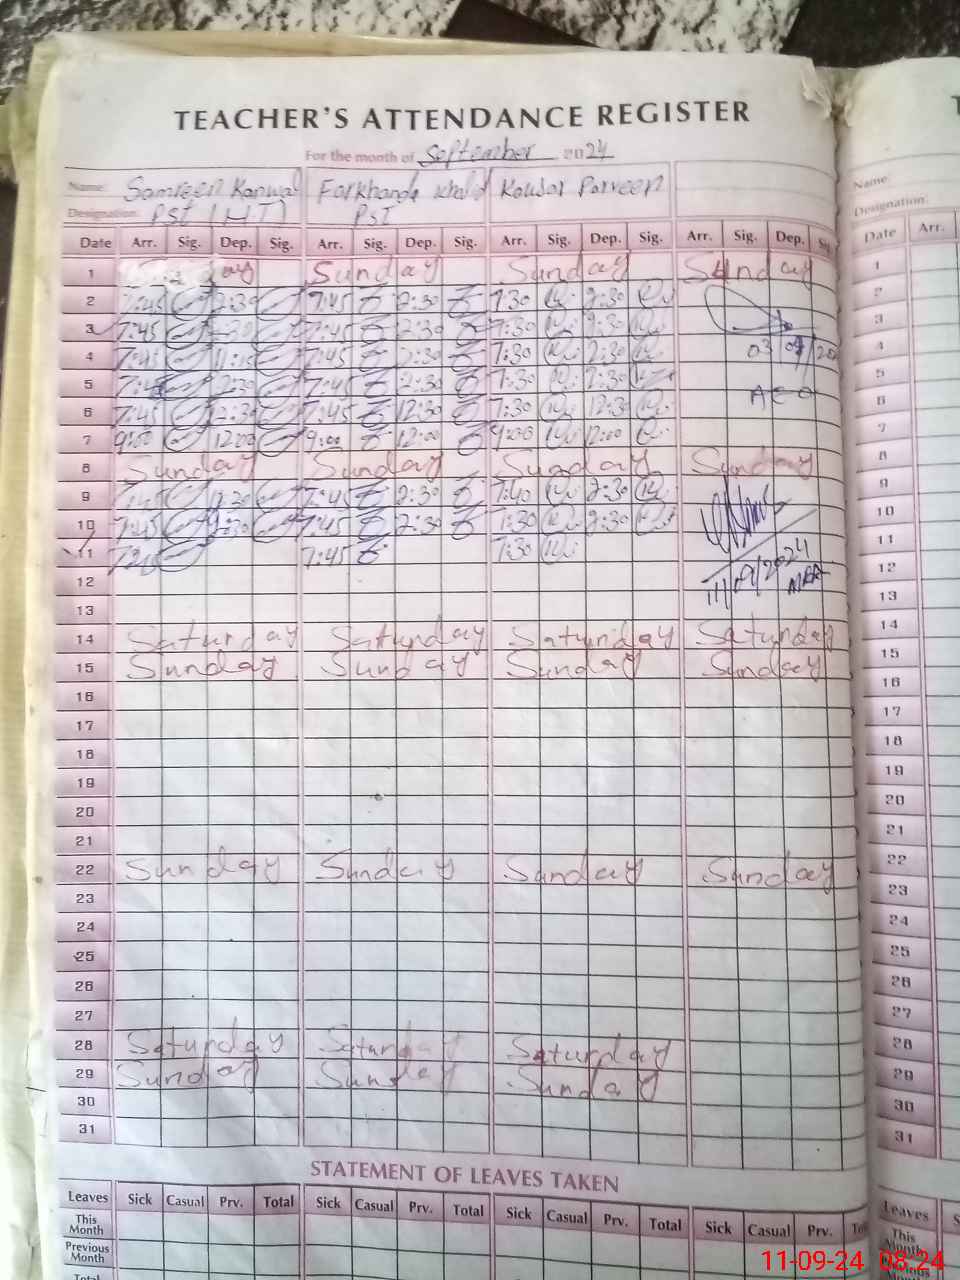 TEACHER'S ATTENDANCE REGISTER
For the month of September 2024
Name: Samreen Kanwal Farkhanda Khalid Kousar Parveen
Designation: PST (HT) PST
Date Arr. Sig. Dep. Sig. Arr. Sig. Dep. Sig. Arr. Sig. Dep. Sig. Arr. Sig. Dep.
1 Sunday Sunday Sunday
2 7:45 2:30 7:45 2:30 7:30 2:30
3 7:45 7:45 2:30 7:30 2:30
4 7:45 11:15 7:45 2:30 7:30 2:30 03/09/
5 2:30 7:45 2:30 7:30 2:30 AEO
6 7:45 2:30 7:45 12:30 7:30 12:30
7 9:00 12:00 9:00 12:00 9:00 12:00
8 Sunday Sunday Sunday Sunday
9 7:45 2:30 7:40 2:30
10 7:45 7:45 2:30 7:30 2:30
11 7:45 7:30 11/09/2024
12 MEA
13
14 Saturday Saturday Saturday Saturday
15 Sunday Sunday Sunday Sunday
16
17
18
19
20
21
22 Sunday Sunday Sunday Sunday
23
24
25
26
27
28 Saturday Saturday Saturday
29 Sunday Sunday Sunday
30
31
STATEMENT OF LEAVES TAKEN
Leaves Sick Casual Prv. Total Sick Casual Prv. Total Sick Casual Prv. Total Sick Casual Prv.
This Month
Previous Month
Total
Name:
Designation:
Date Arr.
1
2
3
4
5
6
7
8
9
10
11
12
13
14
15
16
17
18
19
20
21
22
23
24
25
26
27
28
29
30
31
Leaves
This Month
11-09-24 08:24